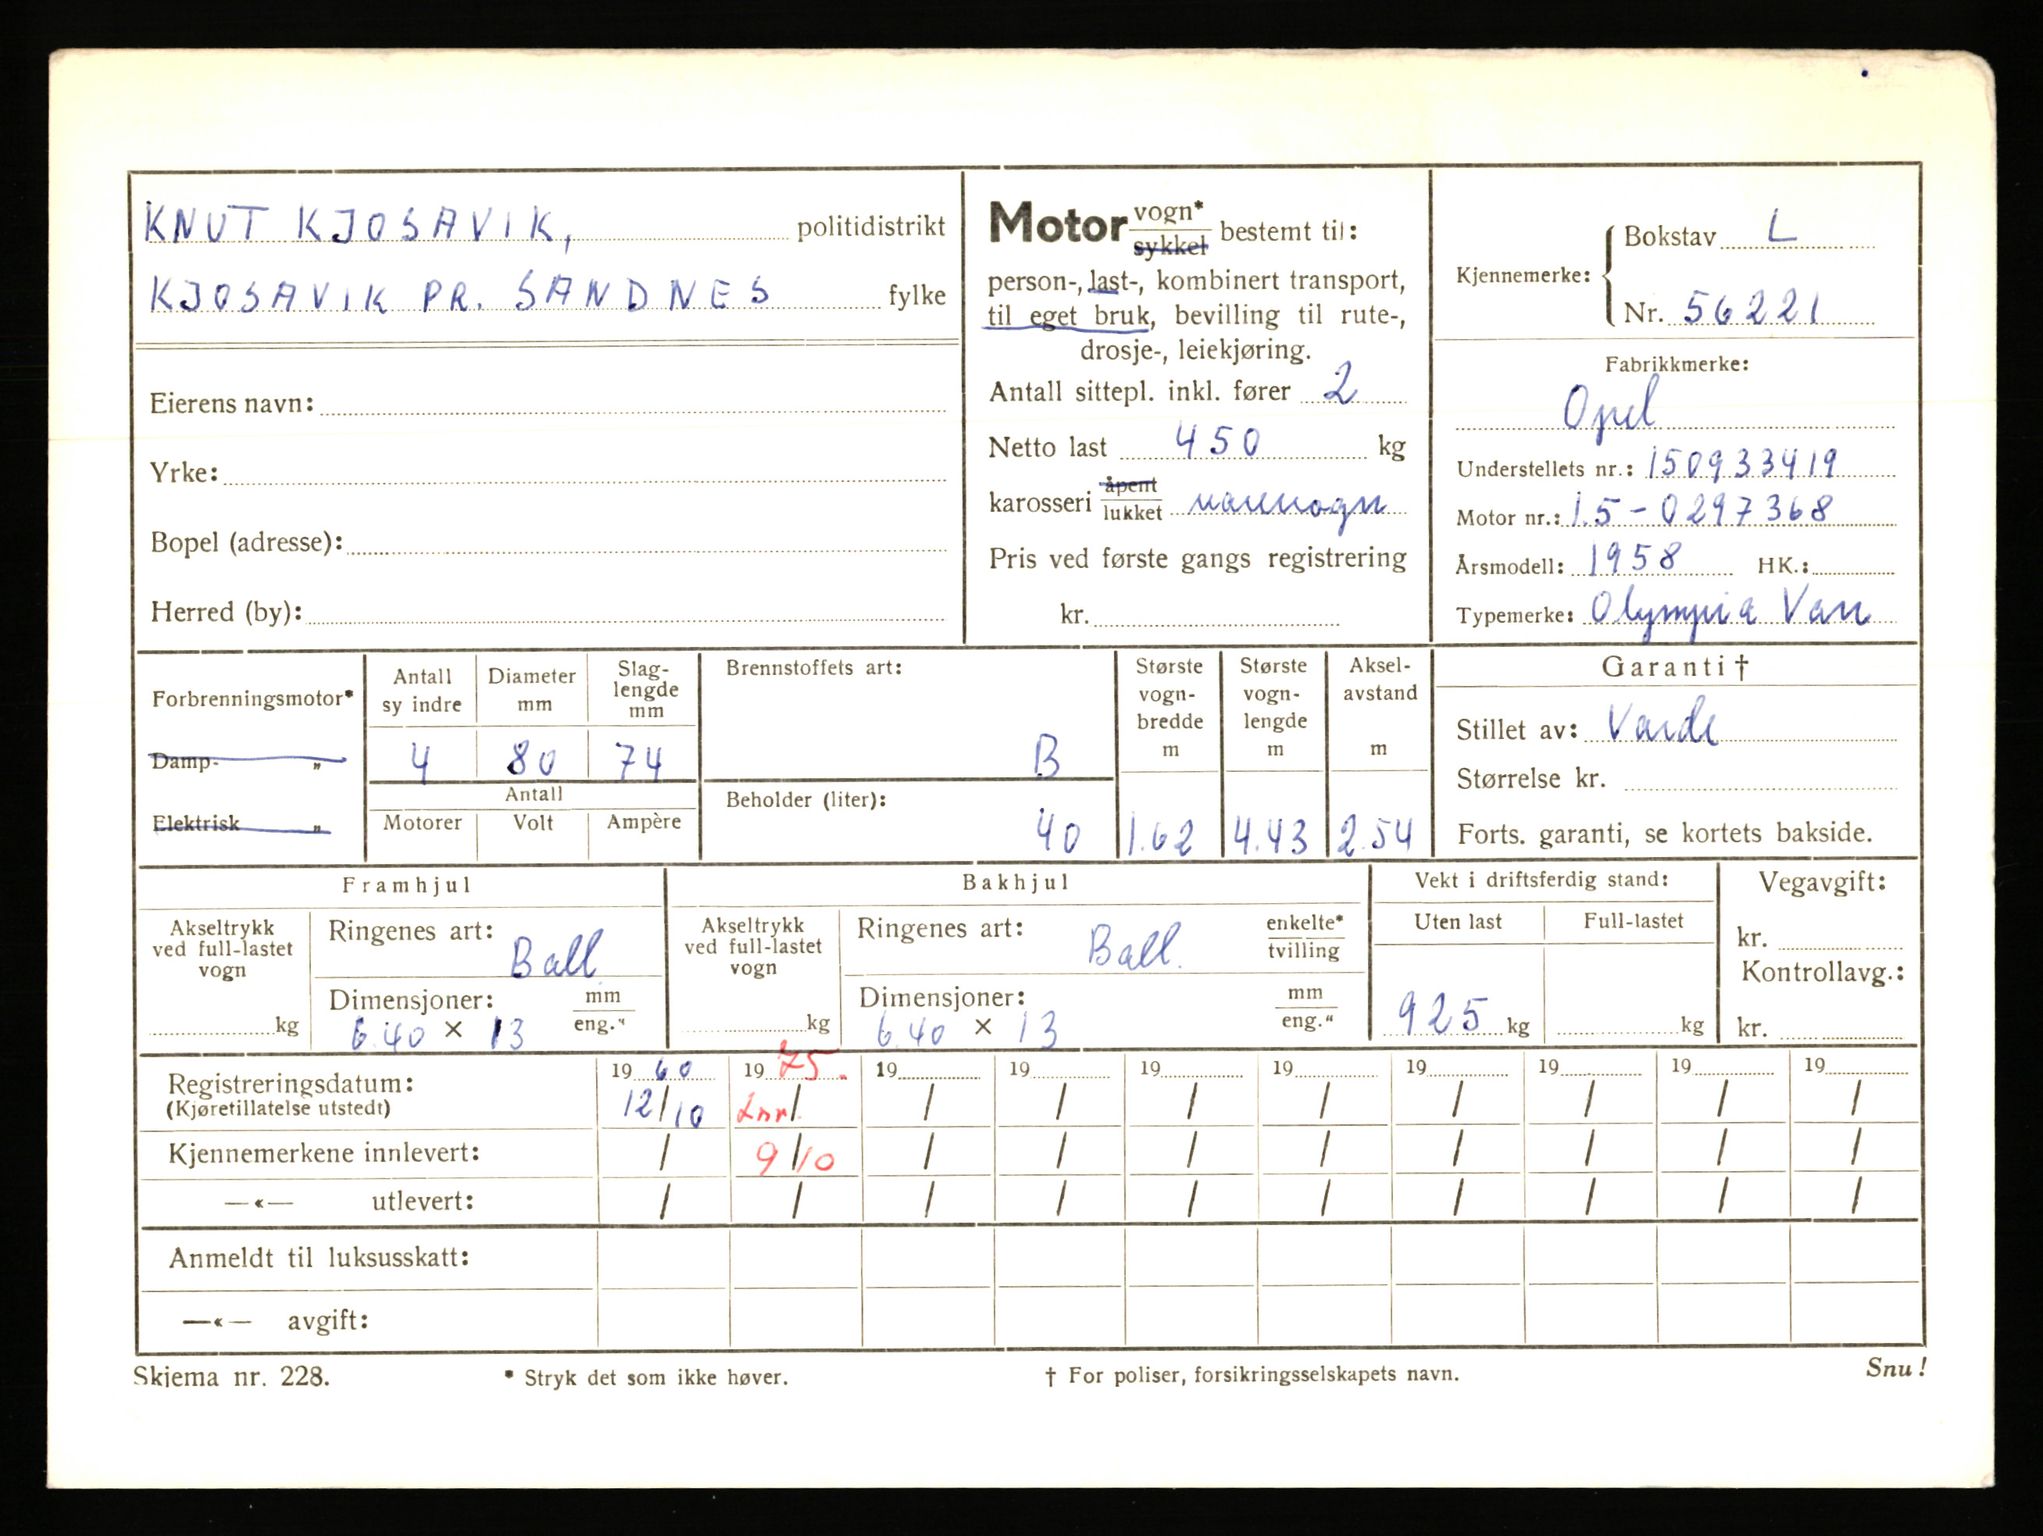 KNUT KJOSAVIK, politidistrikt
KJOSAVIK PR. SANDNES fylke
Eierens navn:
Yrke:
Bopel (adresse):
Herred (by):
Motor vogn* sykkel bestemt til:
person-, last-, kombinert transport,
til eget bruk, bevilling til rute-,
drosje-, leiekjøring.
Antall sittepl. inkl. fører 2
Netto last 450 kg
karosseri åpent lukket varevogn
Pris ved første gangs registrering
kr.
Kjennemerke: Bokstav L
Nr. 56221
Fabrikkmerke:
Opel
Understellets nr.: 150933419
Motor nr.: 1.5-0297368
Årsmodell: 1958 HK.:
Typemerke: Olympia Van
Forbrenningsmotor*
Damp- „
Elektrisk „
Antall sy indre
4
Diameter mm
80
Slag-lengde mm
74
Antall
Motorer Volt Ampère
Brennstoffets art:
B
Beholder (liter):
40
Største vogn-bredde m
1.62
Største vogn-lengde m
4.43
Aksel-avstand m
2.54
Garanti †
Stillet av: Varde
Størrelse kr.
Forts. garanti, se kortets bakside.
Framhjul
Akseltrykk ved full-lastet vogn
kg
Ringenes art: Ball
Dimensjoner: mm eng."
6.40 × 13
Bakhjul
Akseltrykk ved full-lastet vogn
kg
Ringenes art: Ball. enkelte* tvilling
Dimensjoner: mm eng."
6.40 × 13
Vekt i driftsferdig stand:
Uten last Full-lastet
925 kg kg
Vegavgift:
kr.
Kontrollavg.:
kr.
Registreringsdatum: 19 60 19 75. 19 19 19 19 19 19 19 19
(Kjøretillatelse utstedt) 12/10 Lnr/ / / / / / / / /
Kjennemerkene innlevert: / 9/10 / / / / / / / /
—«— utlevert: / / / / / / / / / /
Anmeldt til luksusskatt:
—«— avgift:
Skjema nr. 228. * Stryk det som ikke høver. † For poliser, forsikringsselskapets navn. Snu!